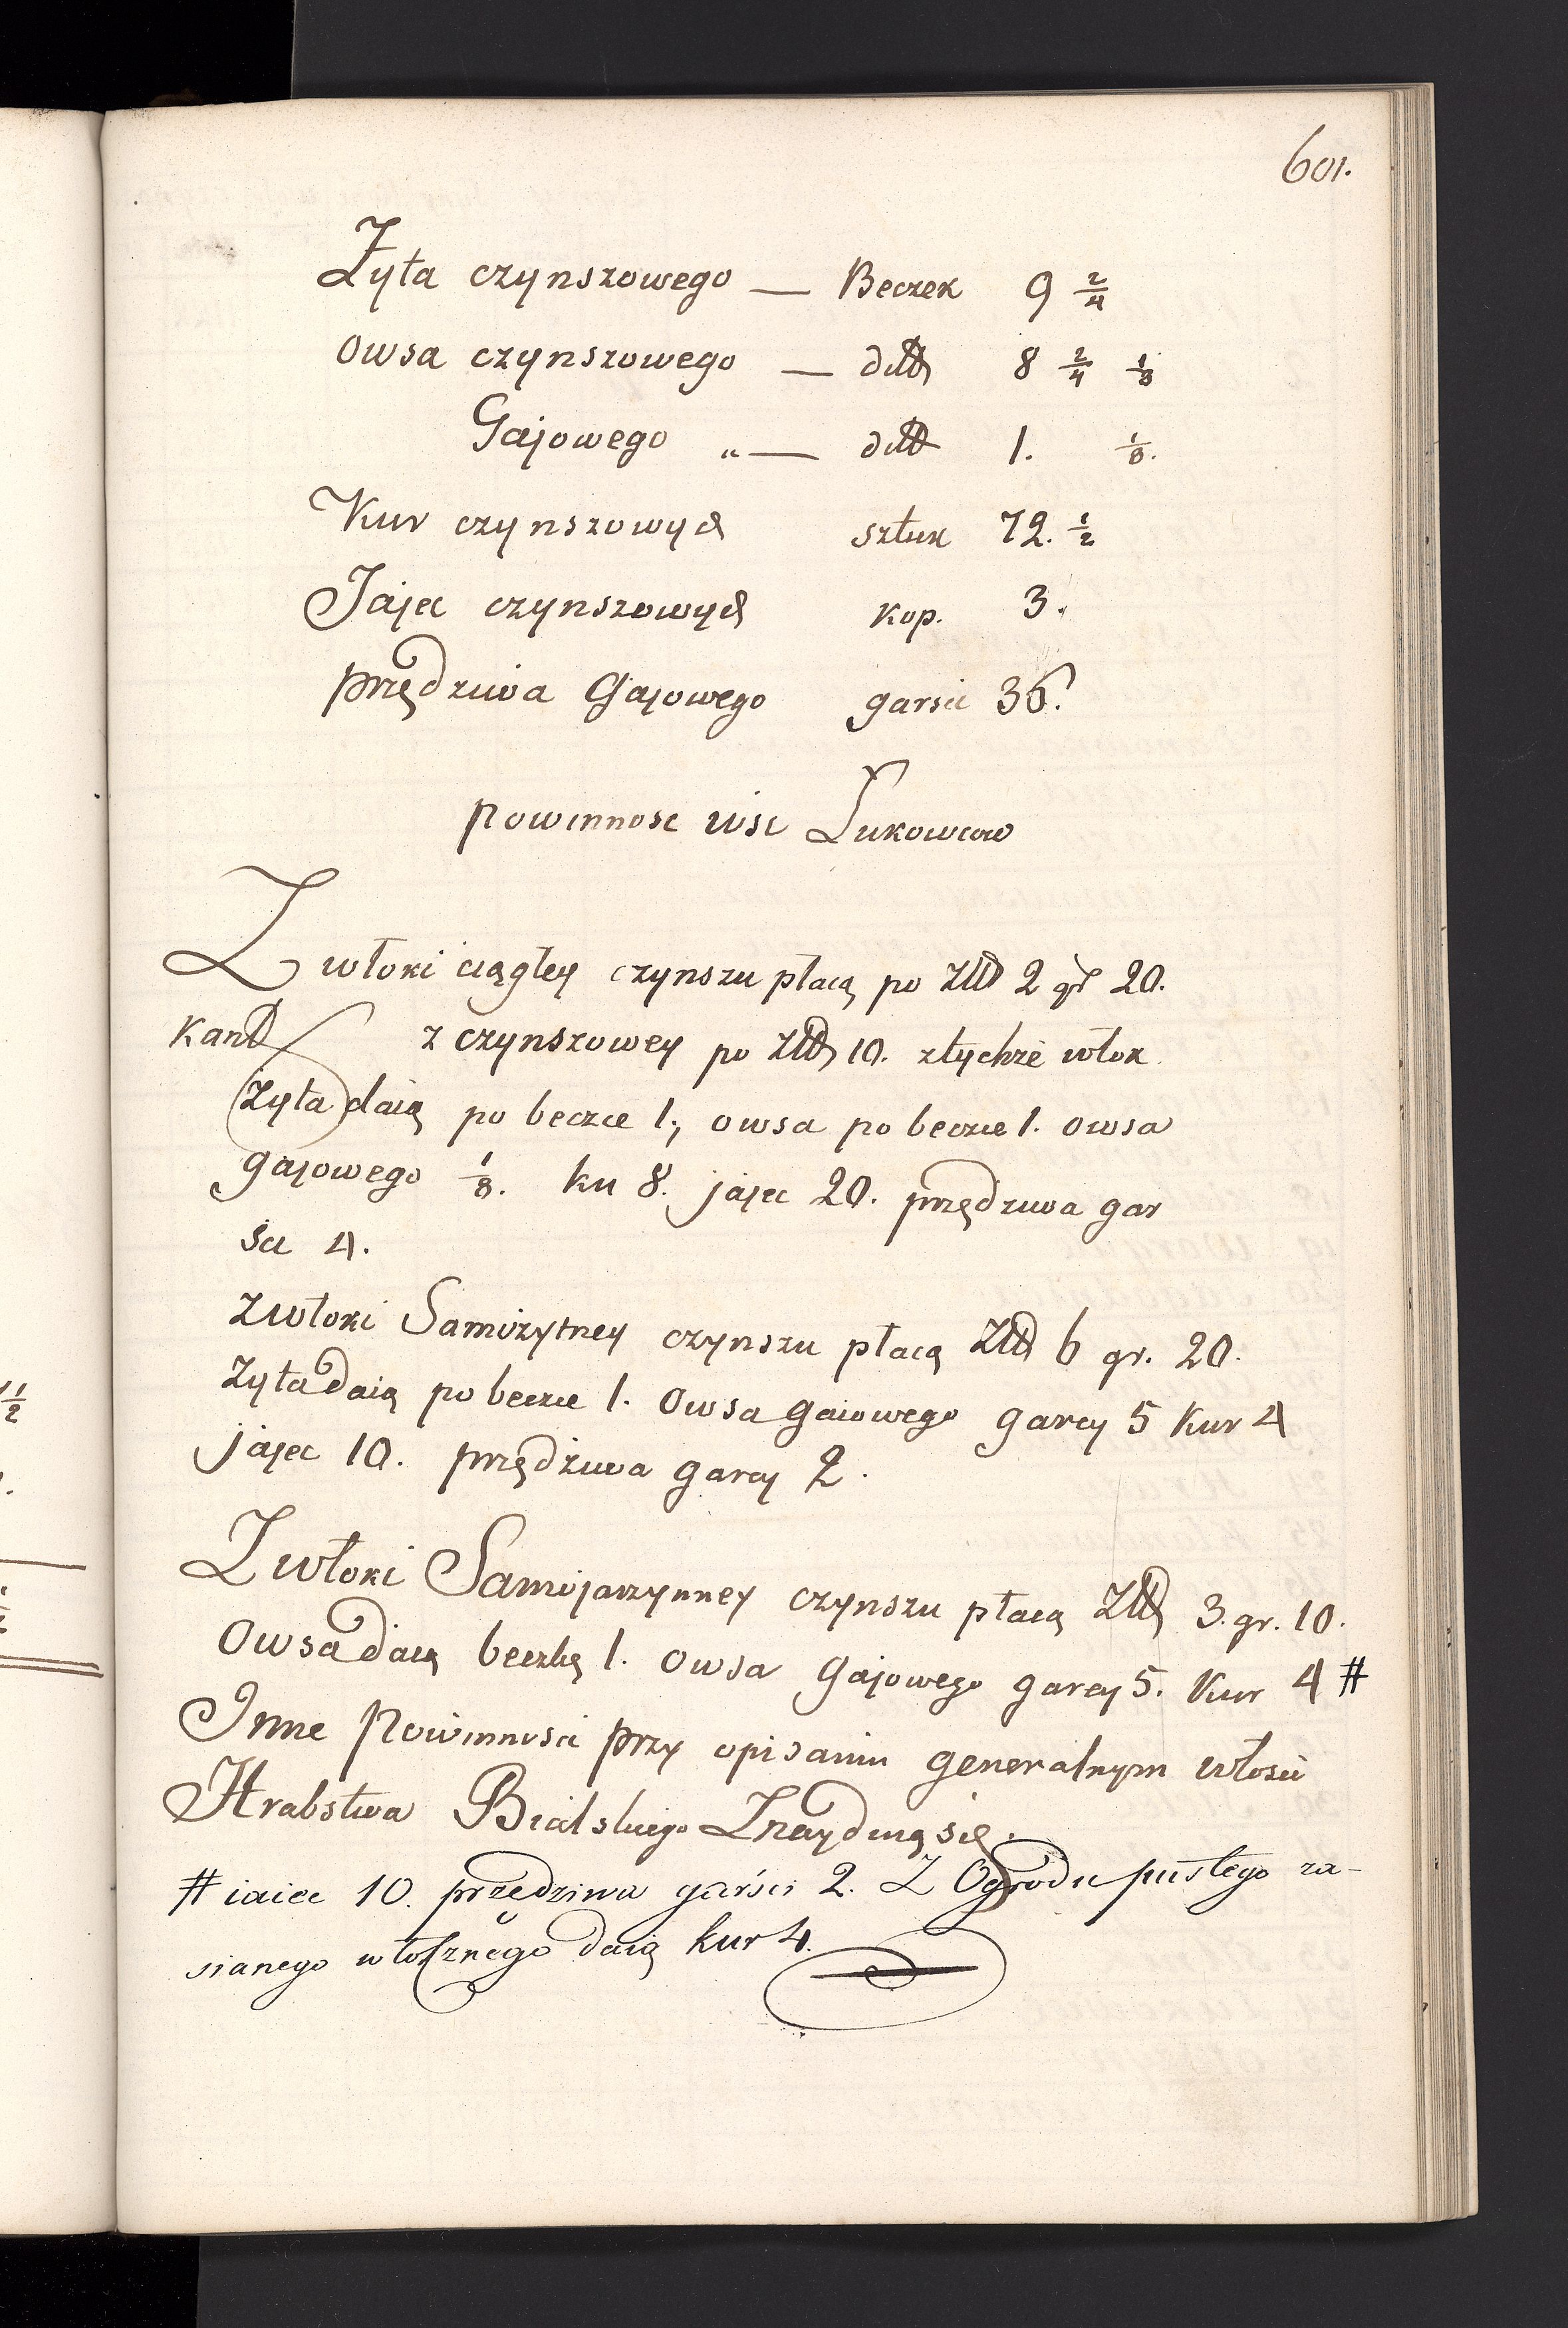 601.
Żyta czynszowego — Beczek 9 2/4
Owsa czynszowego — ditto 8 2/4 1/8
Gajowego „— ditto 1. 1/8.
Kur czynszowych sztuk 72. 1/2
Jajec czynszowych kop. 3.
przędziwa Gajowego garsci 36.
Powinnosc wsi Łukowców
Z włoki ciągłey czynszu płacą po Złł 2 gr 20.
z czynszowey po Złł 10. ztychże włok
żyta daią po beczce 1; owsa po beczce 1. owsa
gajowego 1/8. ku 8. jajec 20. przędziwa gar
sci 4.
Zwłoki Samożytney czynszu płacą Złł 6 gr. 20.
Żyta daią po beczce 1. Owsa gaiowego garcy 5 Kur 4
jajec 10. przędziwa garcy 2.
Z włoki Samojarzynney czynszu płacą Złł 3. gr. 10.
Owsa daią beczkę 1. owsa gajowego garcy 5. Kur 4 #
Inne Powinnosci przy opisaniu generalnym włosci
Hrabstwa Bialskiego Znaydują się.
# iaiec 10. przędziwa garści 2. Z Ogrodu pustego za-
sianego włocznego daią kur 4.